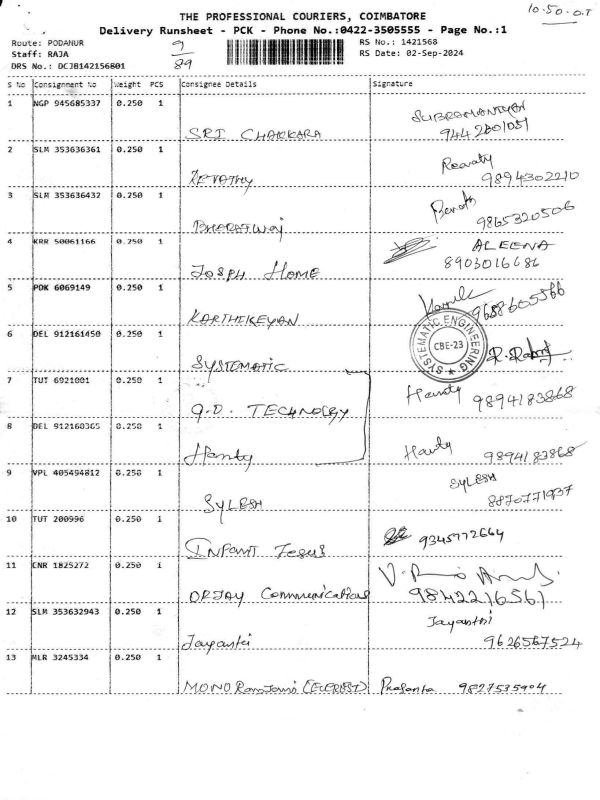 10.50.0.T
THE PROFESSIONAL COURIERS, COIMBATORE
Delivery Runsheet - PCK - Phone No.:0422-3505555 - Page No.:1
Route: PODANUR
Staff: RAJA
DRS No.: DCJB142156801
9
89
RS No.: 1421568
RS Date: 02-Sep-2024
S No Consignment No Weight PCS Consignee Details Signature
1 NGP 945685337 0.250 1 SRI CHAKKARA SUBRAMANIYAN
2 SLM 353636361 0.250 1 REVATHY Revaty 9894302210
3 SLM 353636432 0.250 1 BHARATWAJ 9865320506
4 KRR 50061166 0.250 1 JOSPH HOME ALEENA 8903016686
5 PDK 6069149 0.250 1 KARTHIKEYAN 9688605566
6 DEL 912161450 0.250 1 SYSTEMATIC
SYSTEMATIC ENGINEERING
CBE-23
7 TUT 6921001 0.250 1 Q.D. TECHNOLOGY 9894183868
8 DEL 912160365 0.250 1 9894183868
9 VPL 405494812 0.250 1 SYLESH SYLESH 8870771937
10 TUT 200996 0.250 1 INFANT Jesus 9345772664
11 CNR 1825272 0.250 1 Communications 9842216561
12 SLM 353632943 0.250 1 Jayanthi Jayanthi 9626567524
13 MLR 3245334 0.250 1 MONO Prasanta 9827535904